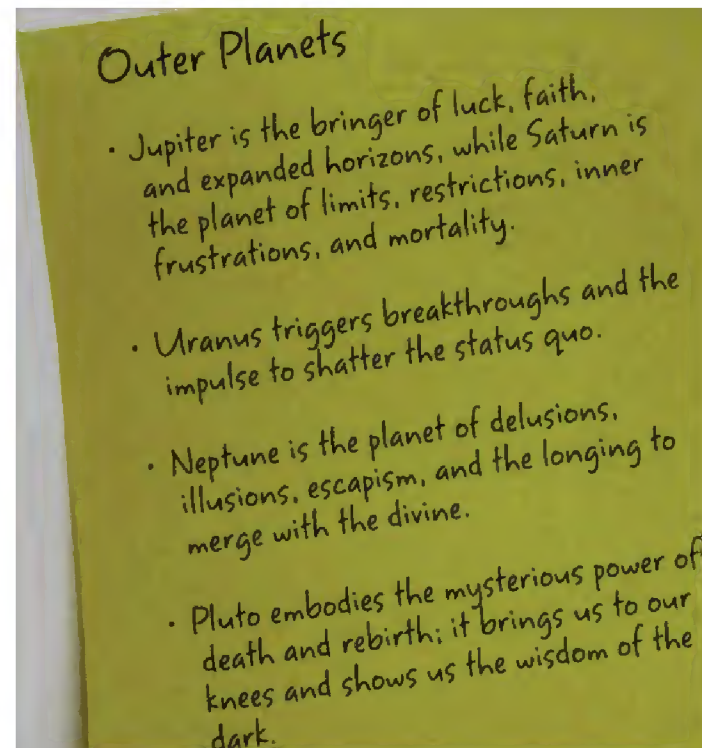 Outer Planets
· Jupiter is the bringer of luck, faith,
and expanded horizons, while Saturn is
the planet of limits, restrictions, inner
frustrations, and mortality.
· Uranus triggers breakthroughs and the
impulse to shatter the status quo.
· Neptune is the planet of delusions,
illusions, escapism, and the longing to
merge with the divine.
· Pluto embodies the mysterious power of
death and rebirth; it brings us to our
knees and shows us the wisdom of the
dark.